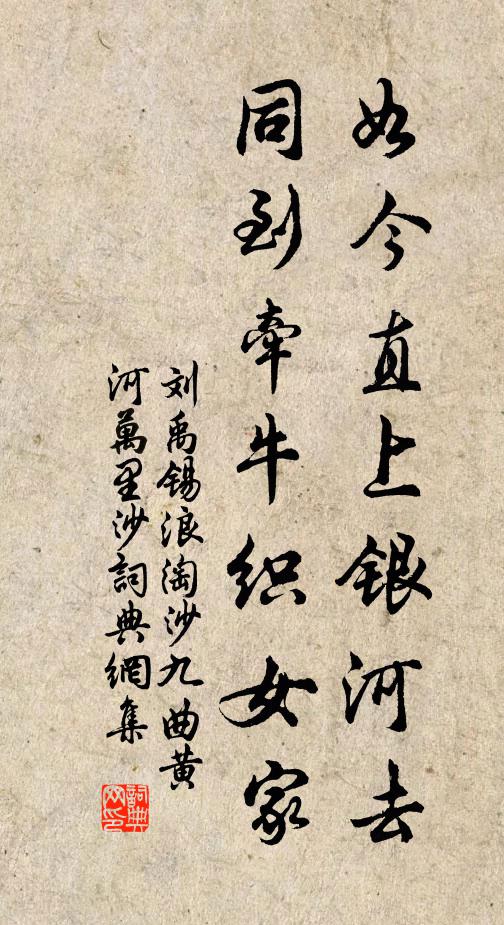 如今直上银河去
同到牵牛织女家
刘禹锡浪淘沙九曲黄
河萬里沙詞典網集
詞典
网印